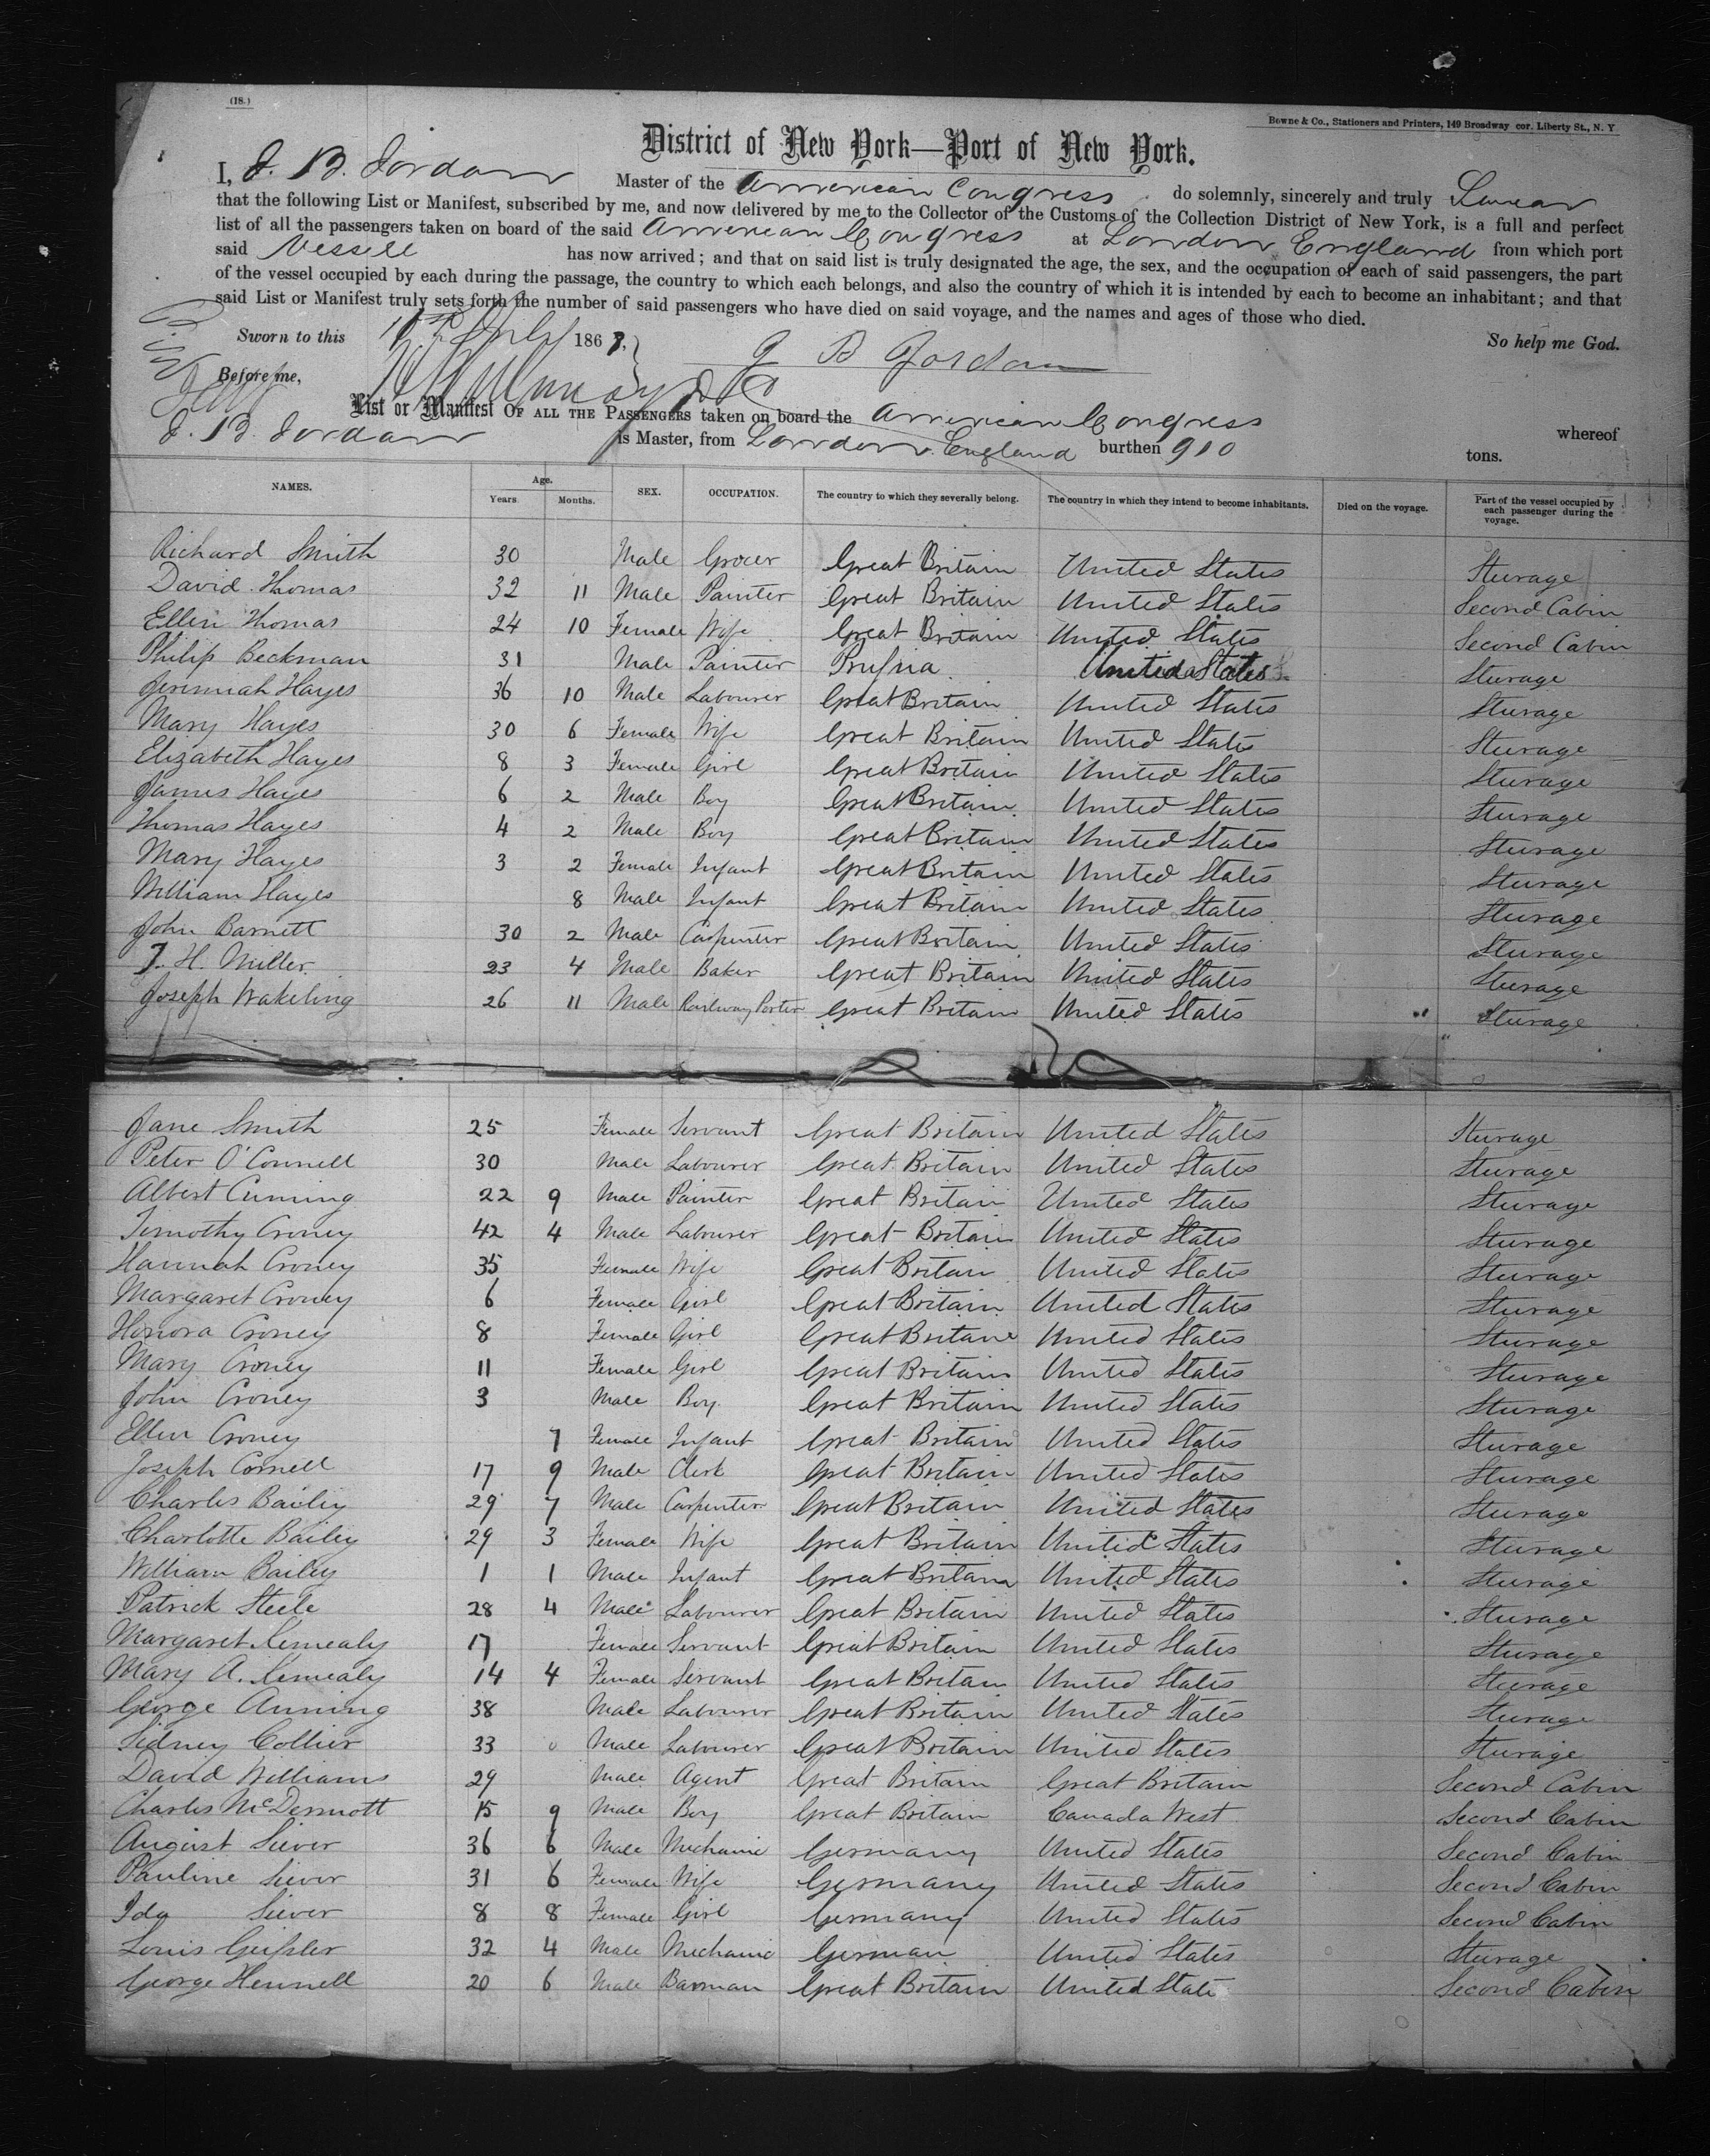 (18.)
Bowne & Co., Stationers and Printers, 149 Broadway cor. Liberty St., N. Y
District of New York—Port of New York.
I, J. B. Jordan Master of the American Congress do solemnly, sincerely and truly Swear
that the following List or Manifest, subscribed by me, and now delivered by me to the Collector of the Customs of the Collection District of New York, is a full and perfect
list of all the passengers taken on board of the said American Congress at London England from which port
said Vessell has now arrived; and that on said list is truly designated the age, the sex, and the occupation of each of said passengers, the part
of the vessel occupied by each during the passage, the country to which each belongs, and also the country of which it is intended by each to become an inhabitant; and that
said List or Manifest truly sets forth the number of said passengers who have died on said voyage, and the names and ages of those who died.
Sworn to this July 1868, So help me God.
J B Jordan
Before me,
List or Manifest OF ALL THE PASSENGERS taken on board the American Congress whereof
J. B. Jordan is Master, from London England burthen 910 tons.
NAMES. Age. Years Months. SEX. OCCUPATION. The country to which they severally belong. The country in which they intend to become inhabitants. Died on the voyage. Part of the vessel occupied by each passenger during the voyage.
Richard Smith 30 Male Grocer Great Britain United States Sturage
David Thomas 32 11 Male Painter Great Britain United States Second Cabin
Ellen Thomas 24 10 Female Wife Great Britain United States Second Cabin
Philip Beckman 31 Male Painter Prussia United States Sturage
Jeremiah Hayes 36 10 Male Labourer Great Britain United States Sturage
Mary Hayes 30 6 Female Wife Great Britain United States Sturage
Elizabeth Hayes 8 3 Female Girl Great Britain United States Sturage
James Hayes 6 2 Male Boy Great Britain United States Sturage
Thomas Hayes 4 2 Male Boy Great Britain United States Sturage
Mary Hayes 3 2 Female Infant Great Britain United States Sturage
William Hayes 8 Male Infant Great Britain United States Sturage
John Barnett 30 2 Male Carpenter Great Britain United States Sturage
J. H. Miller 23 4 Male Baker Great Britain United States Sturage
Joseph Wakeling 26 11 Male Railway Porter Great Britain United States Sturage
Jane Smith 25 Female Servant Great Britain United States Sturage
Peter O'Connell 30 Male Labourer Great Britain United States Sturage
Albert Cuming 22 9 Male Painter Great Britain United States Sturage
Timothy Croney 42 4 Male Labourer Great Britain United States Sturage
Hannah Croney 35 Female Wife Great Britain United States Sturage
Margaret Croney 6 Female Girl Great Britain United States Sturage
Honora Croney 8 Female Girl Great Britain United States Sturage
Mary Croney 11 Female Girl Great Britain United States Sturage
John Croney 3 Male Boy Great Britain United States Sturage
Ellen Croney 7 Female Infant Great Britain United States Sturage
Joseph Cornell 17 9 Male Clerk Great Britain United States Sturage
Charles Bailey 29 7 Male Carpenter Great Britain United States Sturage
Charlotte Bailey 29 3 Female Wife Great Britain United States Sturage
William Bailey 1 1 Male Infant Great Britain United States Sturage
Patrick Steele 28 4 Male Labourer Great Britain United States Sturage
Margaret Kemealy 17 Female Servant Great Britain United States Sturage
Mary A. Kemealy 14 4 Female Servant Great Britain United States Sturage
George Anning 38 Male Labourer Great Britain United States Sturage
Sidney Collier 33 Male Labourer Great Britain United States Sturage
David Williams 29 Male Agent Great Britain Great Britain Second Cabin
Charles McDermott 15 9 Male Boy Great Britain Canada West Second Cabin
August Siever 36 6 Male Mechanic Germany United States Second Cabin
Pauline Siever 31 6 Female Wife Germany United States Second Cabin
Ida Siever 8 8 Female Girl Germany United States Second Cabin
Louis Geissler 32 4 Male Mechanic German United States Sturage
George Hennell 20 6 Male Barman Great Britain United State Second Cabin